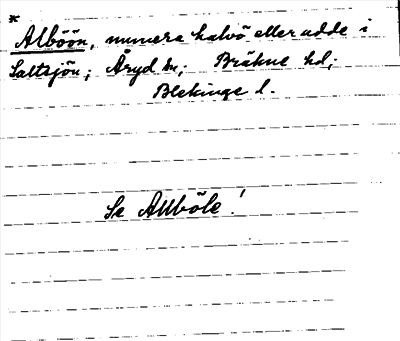 * Alböön, numera halvö eller udde i
Saltsjön; Åryd sn; Bräkne hd;
Blekinge l.
Se Allböle!